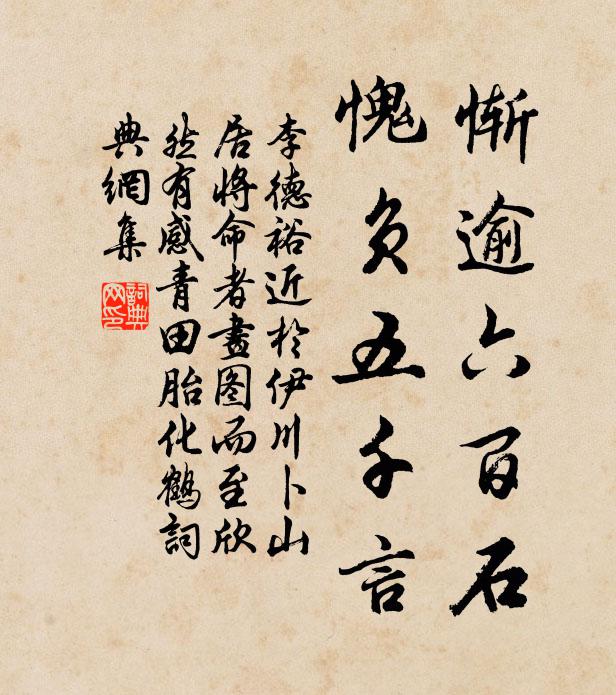 慚逾六百石
愧負五千言
李德裕近於伊川卜山
居將命者畫图而至欣
然有感青田胎化鶴詞
典網集
詞典
网印